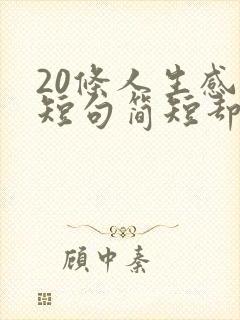 20條人生感
短句简短却
顾中秦